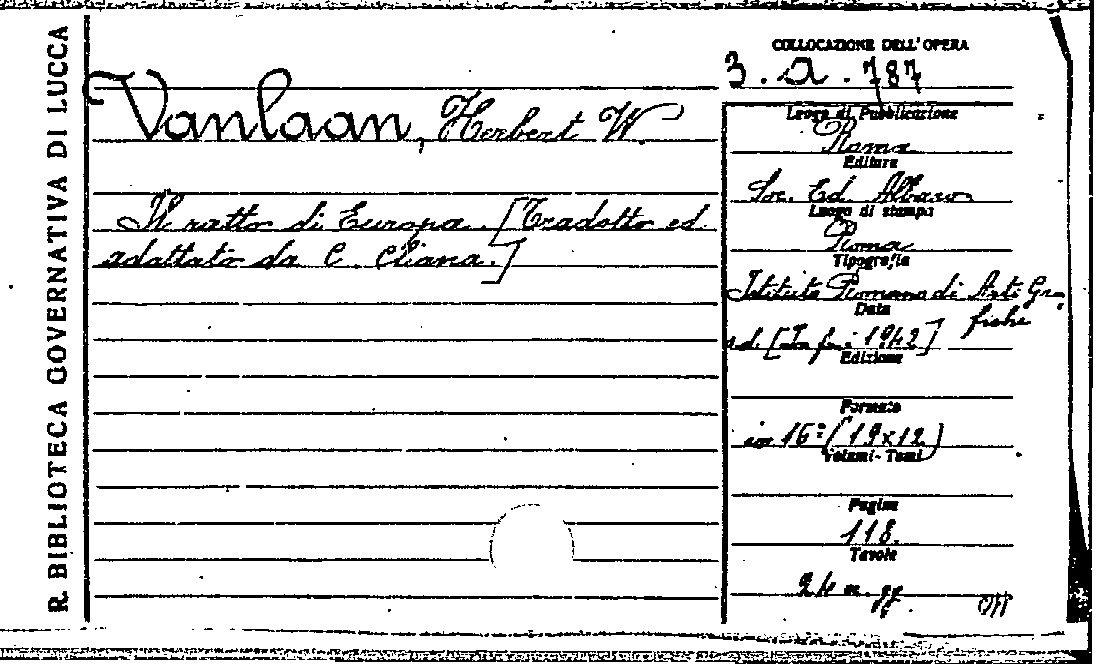 R. BIBLIOTECA GOVERNATIVA DI LUCCA
COLLOCAZIONE DELL'OPERA
3. a. 787
Vanlaan, Herbert W.
Il ratto di Europa. [Tradotto ed
adattato da C. Cliana.]
Luogo di Pubblicazione
Roma
Editore
Soc. Ed. Albaro
Luogo di stampa
Roma
Tipografia
Istituto Romano di Arti Gra-
fiche
Data
s.d. [In fi: 1942]
Edizione
Formato
in 16º (19x12)
Volumi - Tomi
Pagine
118.
Tavole
24 n.